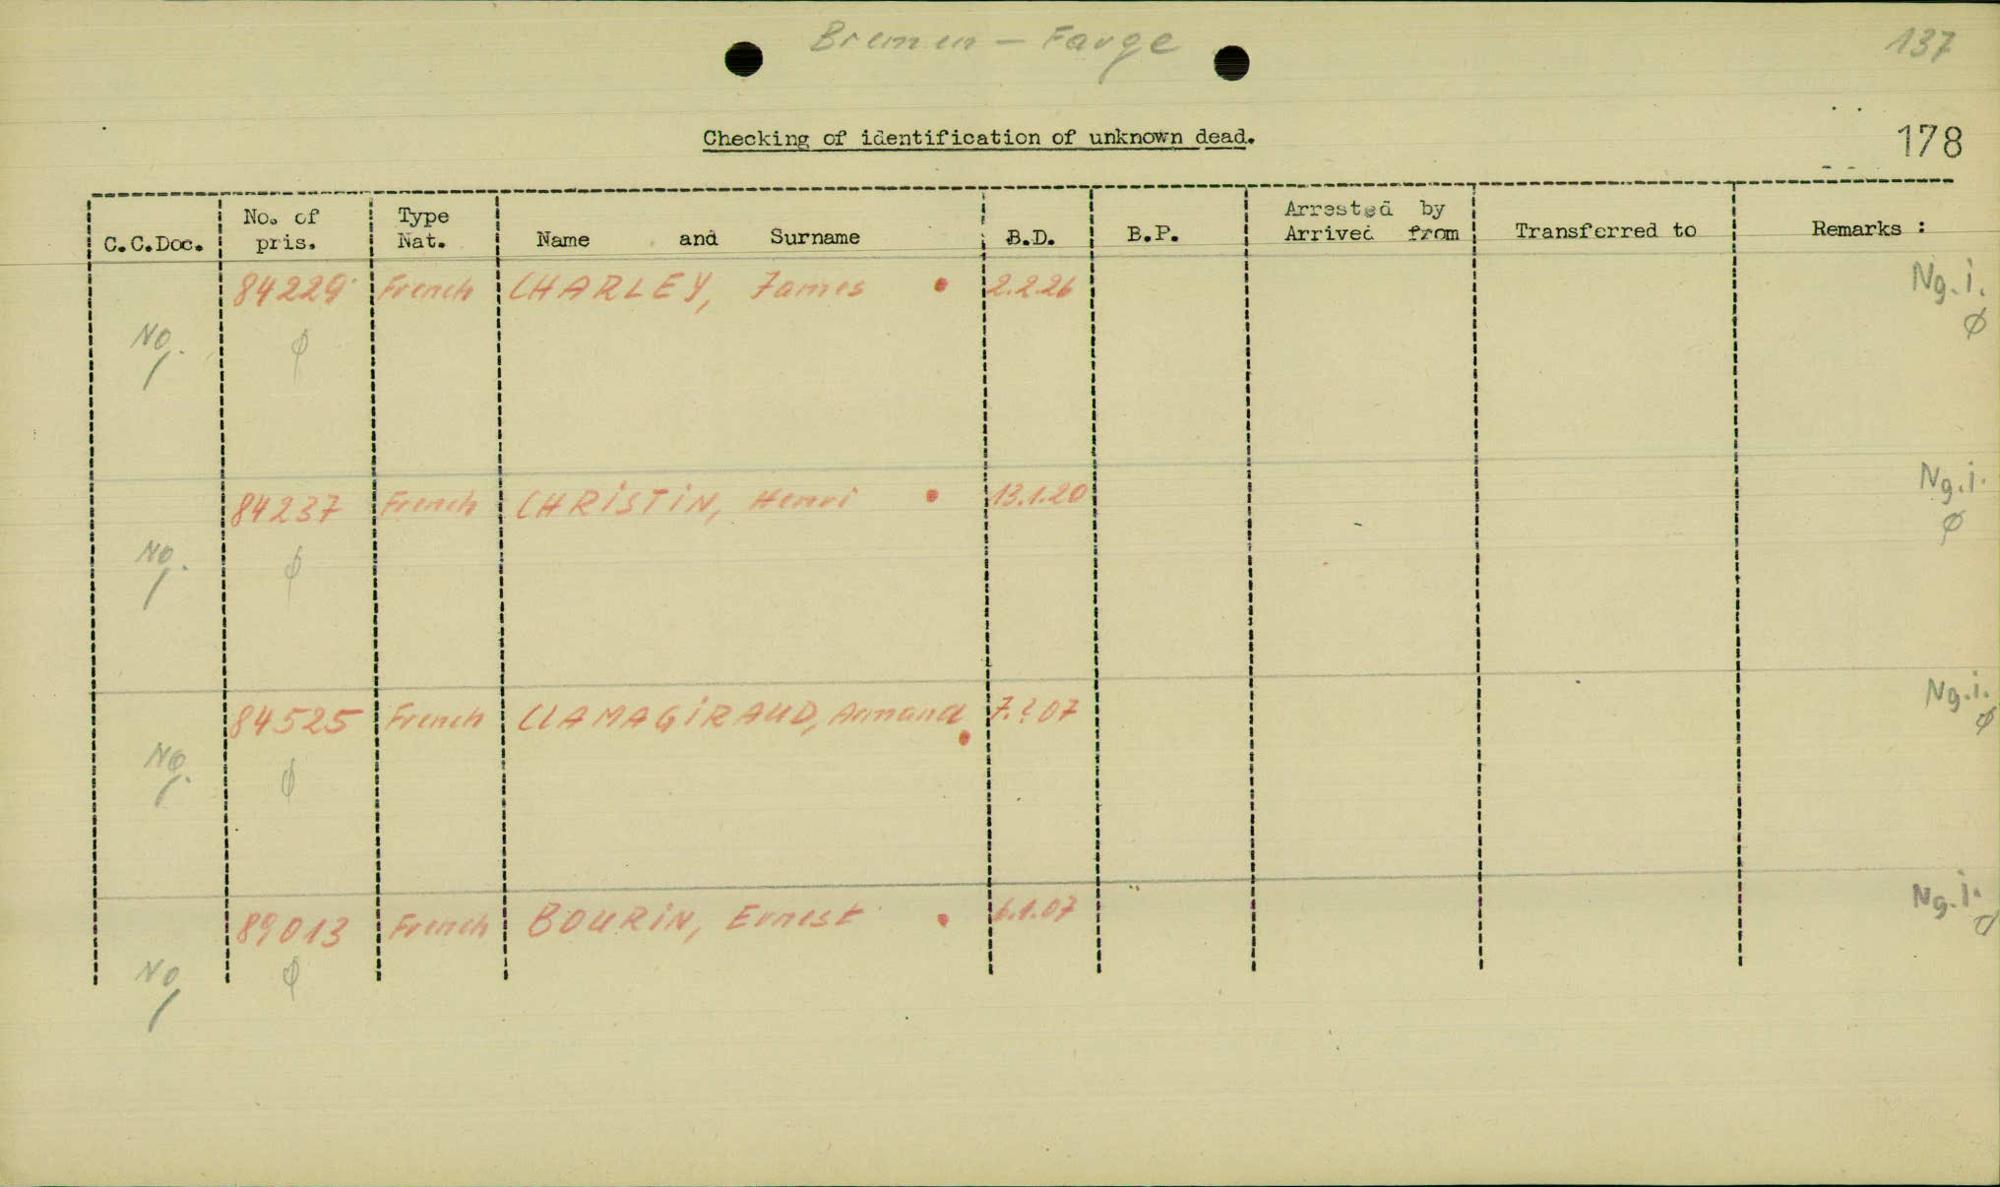 Bremen - Farge
137
Checking of identification of unknown dead.
178
C.C.Doc. No. of pris. Type Nat. Name and Surname B.D. B.P. Arrested by Arrived from Transferred to Remarks :
84229 French CHARLEY, James 2.2.26 Ng.i.
No. ϕ ϕ
84237 French CHRISTIN, Henri 13.1.20 Ng.i.
No. ϕ ϕ
84525 French LLAMAGIRAUD, Armand 7.?.07 Ng.i.
No. ϕ ϕ
89013 French BOURIN, Ernest 6.1.07 Ng.i.
No ϕ